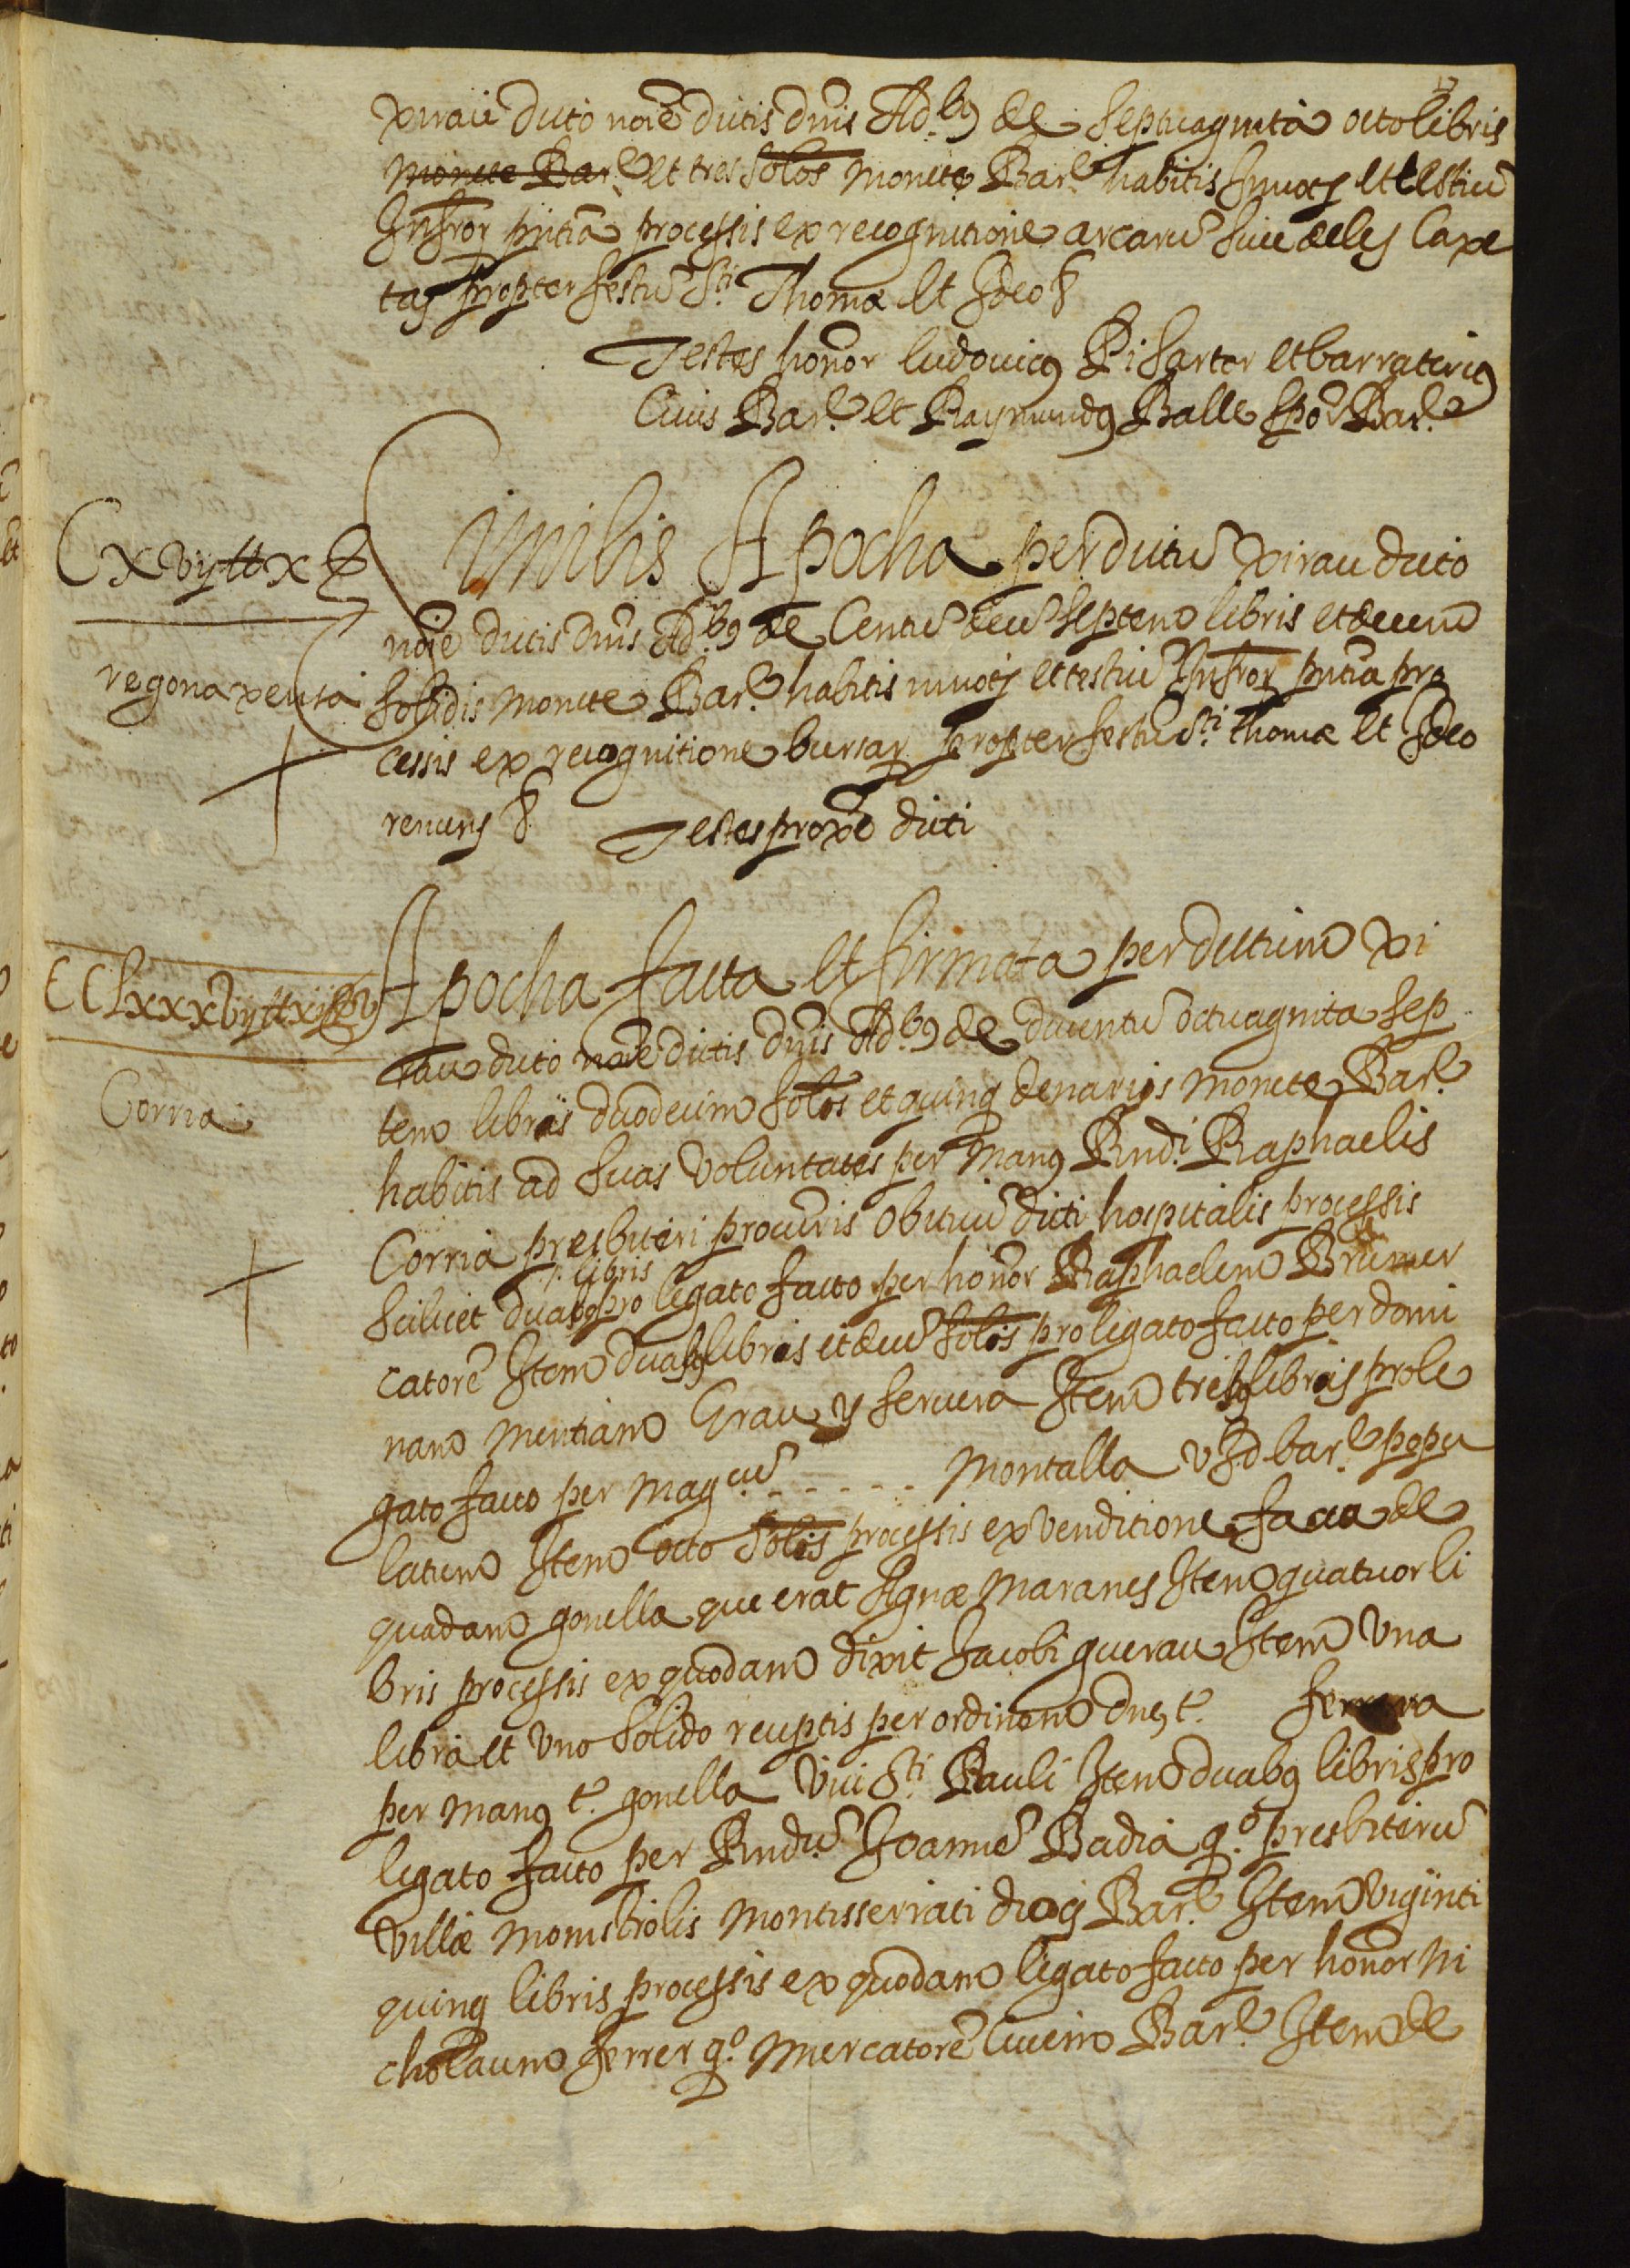 xirau dicto noīe dictis dn̄is Ad.bꝯ de septuaginta octo libris
monete Bar.e et tres solos monete Bar.e habitis in notij et testiū
infror pn̄tia processis ex recognitione arcarū sive de les caxe
tas propter festū Sti. Thomæ et Ideo &
Testes honor ludovicꝯ Pi sartor et barraterius
Civis Bar.e et Raymundꝯ Balle spo Bar.e
Cxvij ll x s
Similis Apocha per dictū xirau dicto
noīe dictis dn̄is Ad.bꝯ de Centū decē septem libris et decem
regona xeura
solidis monete Bar.e habitis in notij et testiū Infror pn̄tia pro
cessis ex recognitione bursar propter festū Sti. thomæ et Ideo
renuns & Testes proxe dicti
Apocha facta et firmata per dictum xi
CClxxxvij ll xij s v
rau dicto noīe dictis dn̄is Ad.bꝯ de ducentū octuaginta sep
Corria
tem libris duodecim solos et quinq denarios monete Bar.e
habitis ad suas voluntates per manꝯ Rndi. Raphaelis
Corria presbiteri procuris obituū dicti hospitalis processis
libris
scilicet duabꝯ pro legato facto per honor Raphaelem Bruner
catorē Item duabꝯ libris et decē solis pro legato facto per domi
nam mentiam Grau y servera Item tribꝯ libris pro le
gato facto per mag.cū - - - - - - montalla VJD bar.e popu
latum Item octo solis processis ex venditione facta de
quadam gonella que erat Agnæ maranes Item quatuor li
bris processis ex quodam dixit Jacobi guerau Item una
libra et uno solido receptis per ordinem dne, t. ferrera
per manꝯ t. gonella vici Sti. Pauli Item duabꝯ libris pro
legato facto per Rndū. Joannē Badia q.o presbiterū
villæ monistrolis montisserrati diocis Bar.e Item viginti
quinq libris processis ex quodam legato facto per honor ni
cholaum ferrer q.o mercatorē Civem Bar.e Item de